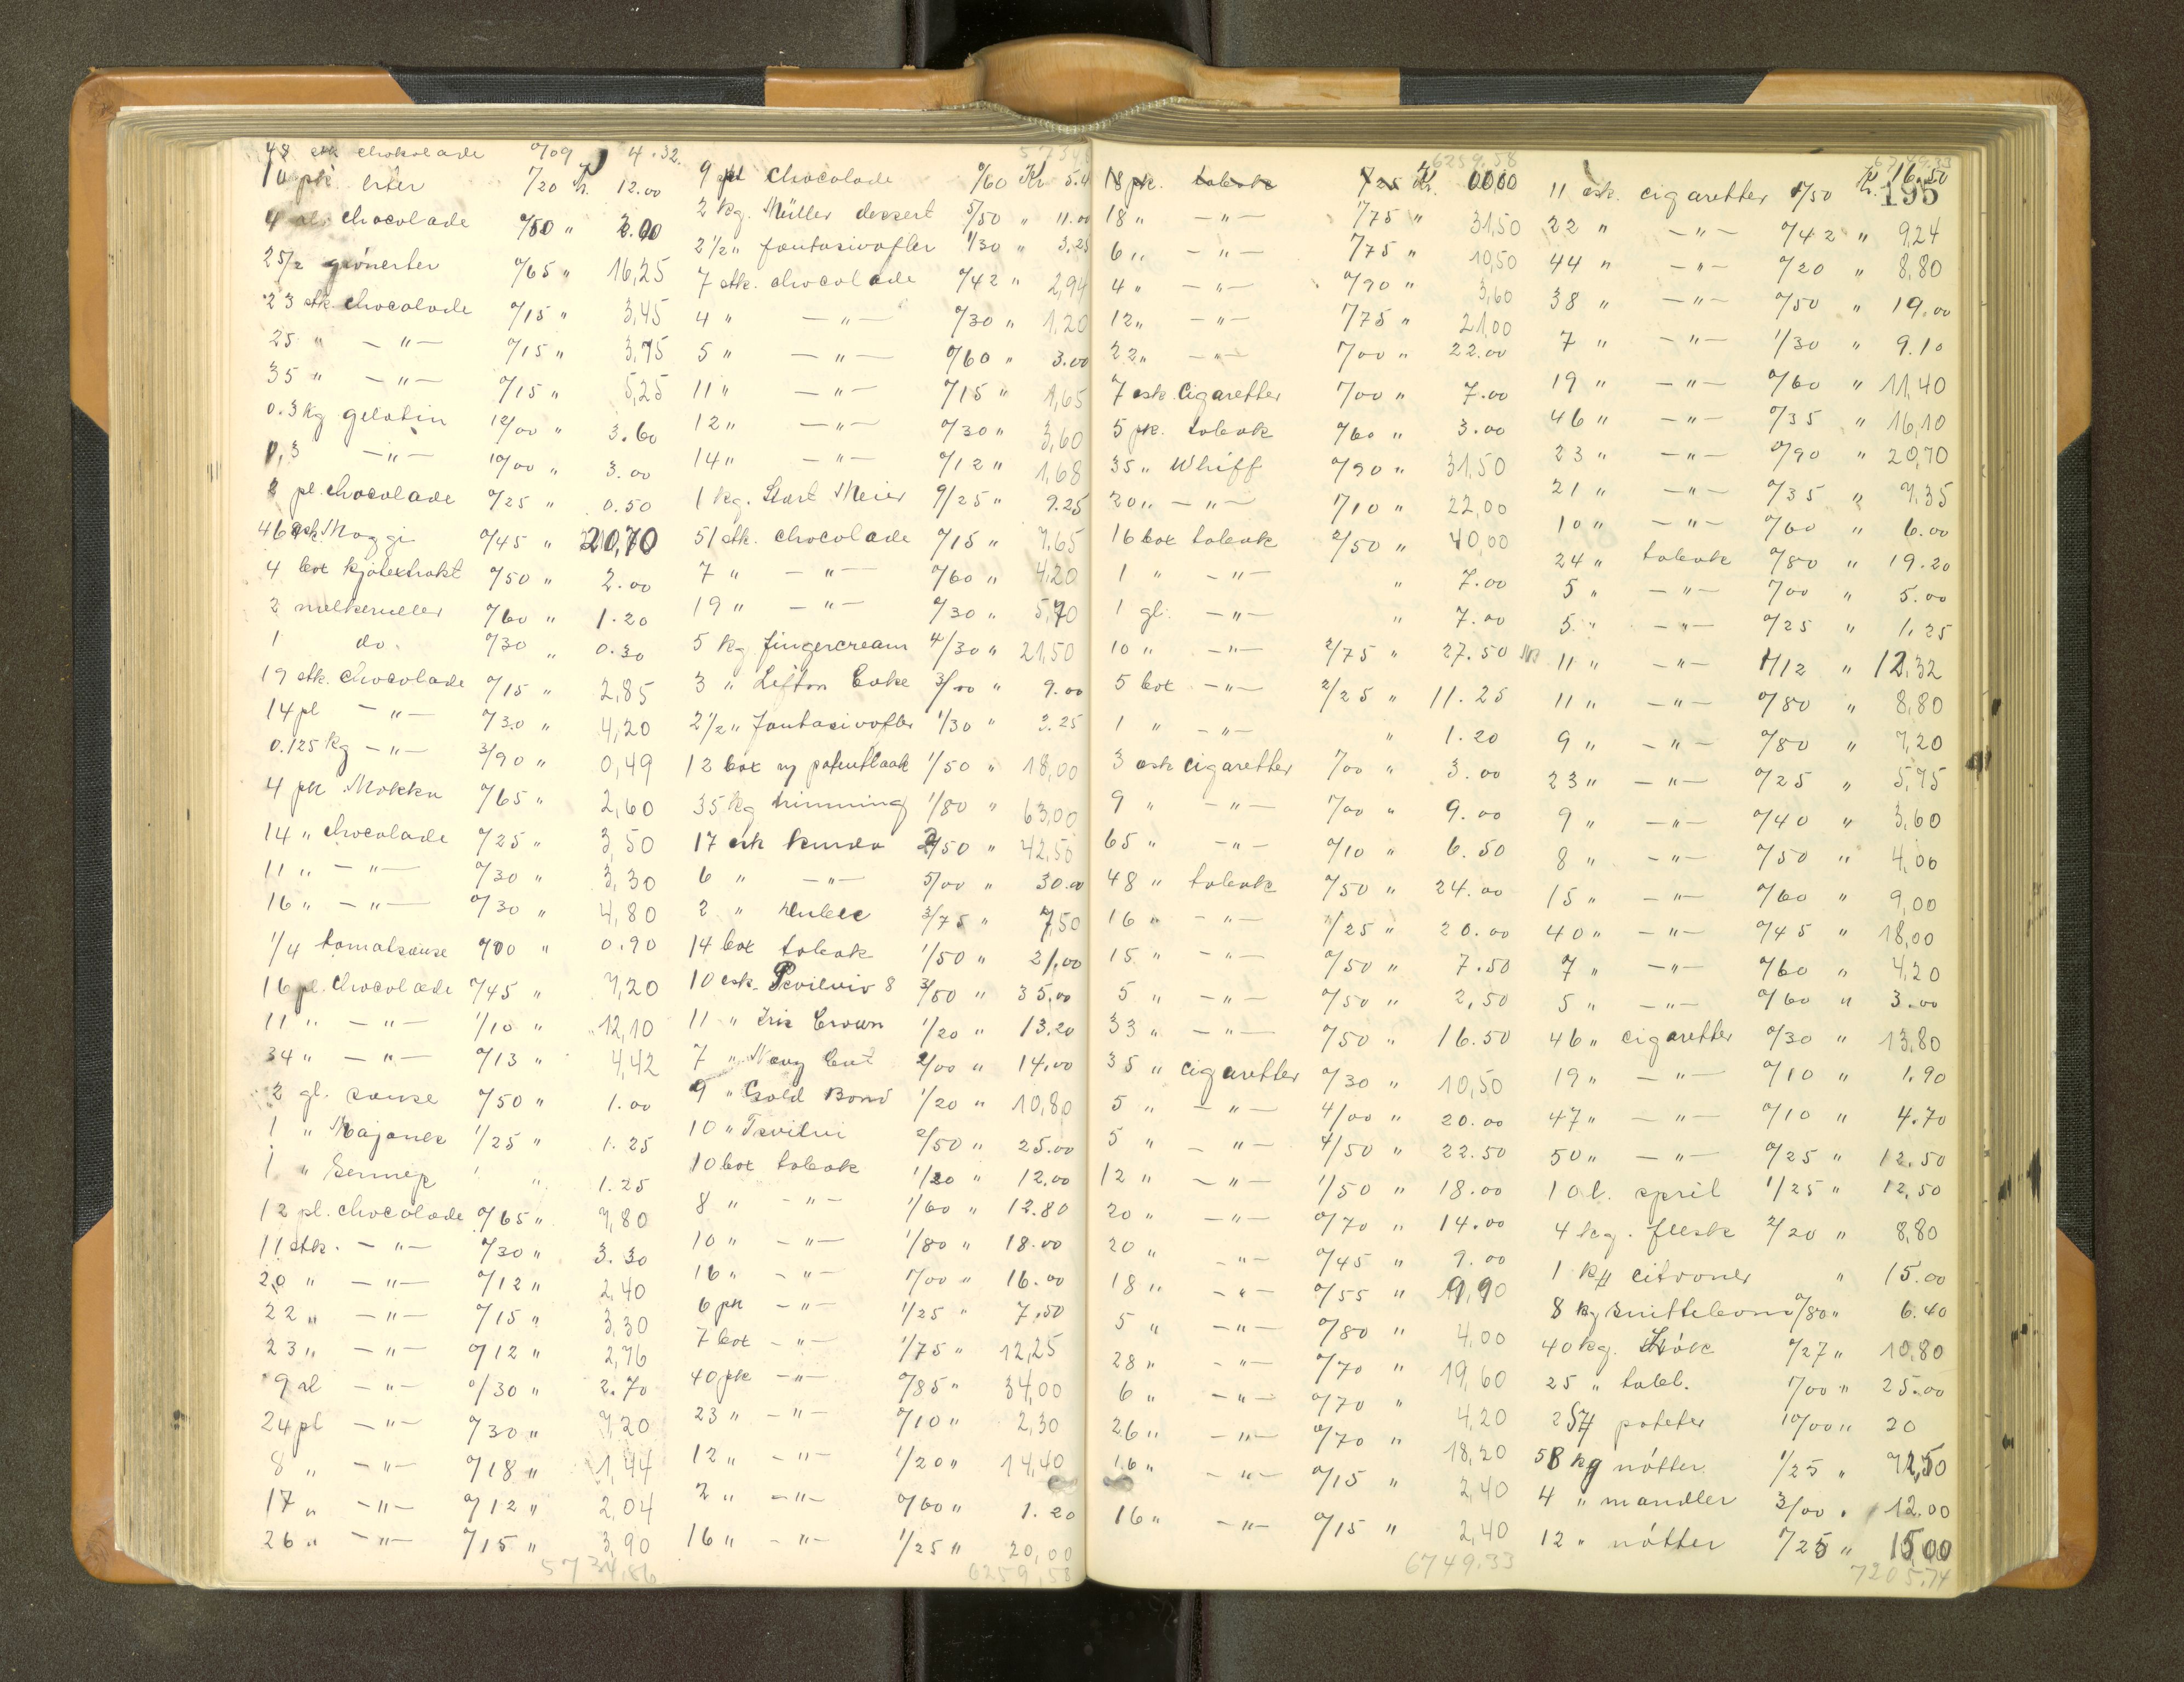 48 stk chokolade 0/09 4.32
10 pk. erter 1/20 Kr. 12.00
4 pl. chocolade 0/50 " 2.00
25/2 grönerter 0/65 " 16,25
23 stk. chocolade 0/15 " 3,45
25 " — " — 0/15 " 3,75
35 " — " — 0/15 " 5,25
0.3 kg gelatin 12/00 " 3.60
0,3 — " — 10/00 " 3.00
2 pl. chocolade 0/25 " 0.50
46 esk. Maggi 0/45 " 20,70
4 box kjötextrakt 0/50 " 2.00
2 melkeruller 0/60 " 1.20
1 do. 0/30 " 0.30
19 stk. chocolade 0/15 " 2,85
14 pl — " — 0/30 " 4,20
0.125 kg — " — 3/90 " 0,49
4 pk Mokka 0/65 " 2,60
14 " chocolade 0/25 " 3,50
11 " — " — 0/30 " 3,30
16 " — " — 0/30 " 4,80
1/4 tomatsause 0/90 " 0.90
16 pl. chocolade 0/45 " 7,20
11 " — " — 1/10 " 12,10
34 " — " — 0/13 " 4,42
2 gl. sause 0/50 " 1.00
1 " Majones 1/25 " 1.25
1 " Sennep " " 1.25
12 pl. chocolade 0/65 " 7,80
11 stk. — " — 0/30 " 3.30
20 " — " — 0/12 " 2,40
22 " — " — 0/15 " 3,30
23 " — " — 0/12 " 2,76
9 pl — " — 0/30 " 2.70
24 pl — " — 0/30 " 7,20
8 " — " — 0/18 " 1,44
17 " — " — 0/12 " 2,04
26 " — " — 0/15 " 3,90
5734,86
9 pl chocolade 0/60 Kr 5.4
2 kg. Müller dessert 5/50 " 11.00
2 1/2 " fantasivafler 1/30 " 3.25
7 stk. chocolade 0/42 " 2,94
4 " — " — 0/30 " 1,20
5 " — " — 0/60 " 3.00
11 " — " — 0/15 " 1,65
12 " — " — 0/30 " 3,60
14 " — " — 0/12 " 1,68
1 kg. Start Meier 9/25 " 9.25
51 stk. chocolade 0/15 " 7,65
7 " — " — 0/60 " 4,20
19 " — " — 0/30 " 5,70
5 kg fingercream 4/30 " 21,50
3 " Lifton Cake 3/00 " 9.00
2 1/2 " Fantasivafler 1/30 " 3.25
12 box ny patentlaak 1/50 " 18,00
35 kg trimming 1/80 " 63,00
17 esk 2/50 " 42,50
6 " — " — 5/00 " 30.00
2 " 3/75 " 7,50
14 box tobak 1/50 " 21,00
10 esk. 8 3/50 " 35.00
11 " Iris Crown 1/20 " 13.20
7 " Navy Cut 2/00 " 14.00
9 " Gold Bond 1/20 " 10,80
10 " Tsvilvi 2/50 " 25.00
10 box tobak 1/20 " 12.00
8 " — " — 1/60 " 12.80
10 " — " — 1/80 " 18.00
16 " — " — 1/00 " 16.00
6 pk — " — 1/25 " 7.50
7 box — " — 1/75 " 12,25
40 pk — " — 0/85 " 34,00
23 " — " — 0/10 " 2,30
12 " — " — 1/20 " 14,40
2 " — " — 0/60 " 1.20
16 " — " — 1/25 " 20,00
6259,58
6259.58
18 pk. tobak 7/25 Kr. 00.00
18 " — " — 1/75 " 31,50
6 " — " — 1/75 " 10,50
4 " — " — 0/90 " 3,60
12 " — " — 1/75 " 21,00
22 " — " — 1/00 " 22.00
7 esk. cigaretter 1/00 " 7.00
5 pk. tobak 0/60 " 3.00
35 " Whiff 0/90 " 31,50
20 " — " — 1/10 " 22,00
16 box tobak 2/50 " 40,00
1 " — " — " 7.00
1 gl. — " — " 7.00
10 " — " — 2/75 " 27.50
5 box — " — 2/25 " 11.25
1 " — " — " 1.20
3 esk cigaretter 1/00 " 3.00
9 " — " — 1/00 " 9.00
65 " — " — 0/10 " 6.50
48 " tobak 0/50 " 24.00
16 " — " — 1/25 " 20.00
15 " — " — 0/50 " 7.50
5 " — " — 0/50 " 2,50
33 " — " — 0/50 " 16.50
35 " cigaretter 0/30 " 10,50
5 " — " — 4/00 " 20.00
5 " — " — 4/50 " 22.50
12 " — " — 1/50 " 18.00
20 " — " — 0/70 " 14.00
20 " — " — 0/45 " 9.00
18 " — " — 0/55 " 9,90
5 " — " — 0/80 " 4,00
28 " — " — 0/70 " 19,60
6 " — " — 0/70 " 4,20
26 " — " — 0/70 " 18,20
16 " — " — 0/15 " 2,40
16 " — " — 0/15 " 2,40
6749.33
6749.33
195
11 esk. cigaretter 1/50 Kr. 16.50
22 " — " — 0/42 " 9,24
44 " — " — 0/20 " 8,80
38 " — " — 0/50 " 19.00
7 " — " — 1/30 " 9.10
19 " — " — 0/60 " 11,40
46 " — " — 0/35 " 16,10
23 " — " — 0/90 " 20,70
21 " — " — 0/35 " 7,35
10 " — " — 0/60 " 6.00
24 " tobak 0/80 " 19.20
5 " — " — 1/00 " 5.00
5 " — " — 0/25 " 1,25
11 " — " — 1/12 " 12,32
11 " — " — 0/80 " 8,80
9 " — " — 0/80 " 7,20
23 " — " — 0/25 " 5,75
9 " — " — 0/40 " 3,60
8 " — " — 0/50 " 4,00
15 " — " — 0/60 " 9,00
40 " — " — 0/45 " 18,00
7 " — " — 0/60 " 4,20
5 " — " — 0/60 " 3.00
46 " cigaretter 0/30 " 13,80
19 " — " — 0/10 " 1.90
47 " — " — 0/10 " 4.70
50 " — " — 0/25 " 12.50
10 l. sprit 1/25 " 12,50
4 kg. flesk 2/20 " 8,80
1 k/f citroner " 15.00
8 kg snittebonn 0/80 " 6.40
40 kg. Lök 0/27 " 10,80
25 " tabl. 1/00 " 25.00
2 S/f poteter 10/00 " 20
58 kg nötter 1/25 " 72,50
4 " mandler 3/00 " 12.00
12 " nötter 1/25 " 15,00
7205.74